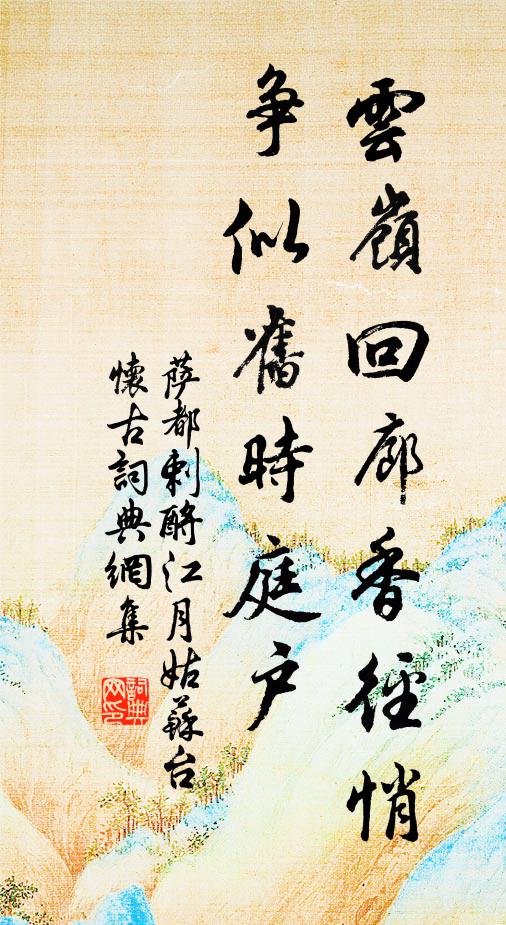 雲嶺回廊香徑悄
爭似舊時庭戶
薩都剌酹江月姑蘇台
懷古詞典網集
詞典網印